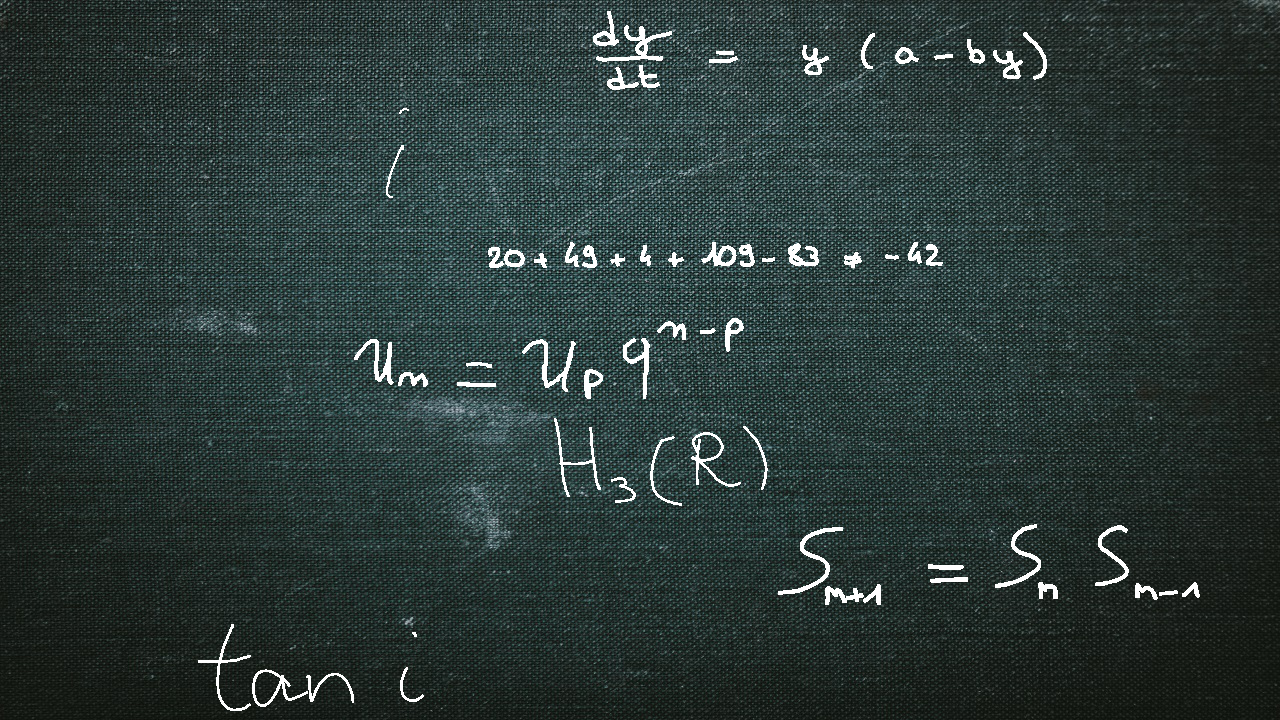 dy/dt = y (a - by)
i
20 + 49 + 4 + 109 - 83 ≠ -42
u_n = u_p q^{n-p}
H_3(R)
S_{n+1} = S_n S_{n-1}
tan i